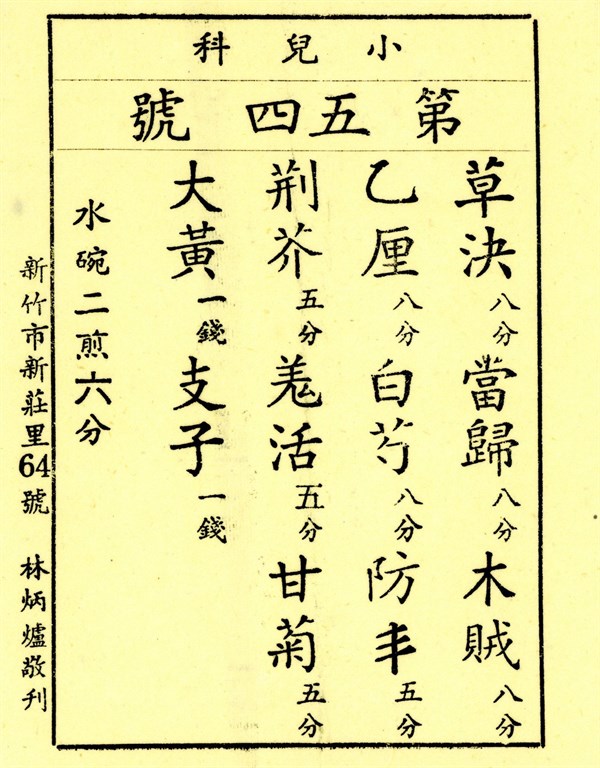 小兒科
第五四號
草決八分 當歸八分 木賊八分
乙厘八分 白芍八分 防丰五分
荆芥五分 羗活五分 甘菊五分
大黃一錢 支子一錢
水碗二煎六分
新竹市新莊里64號 林炳爐敬刊